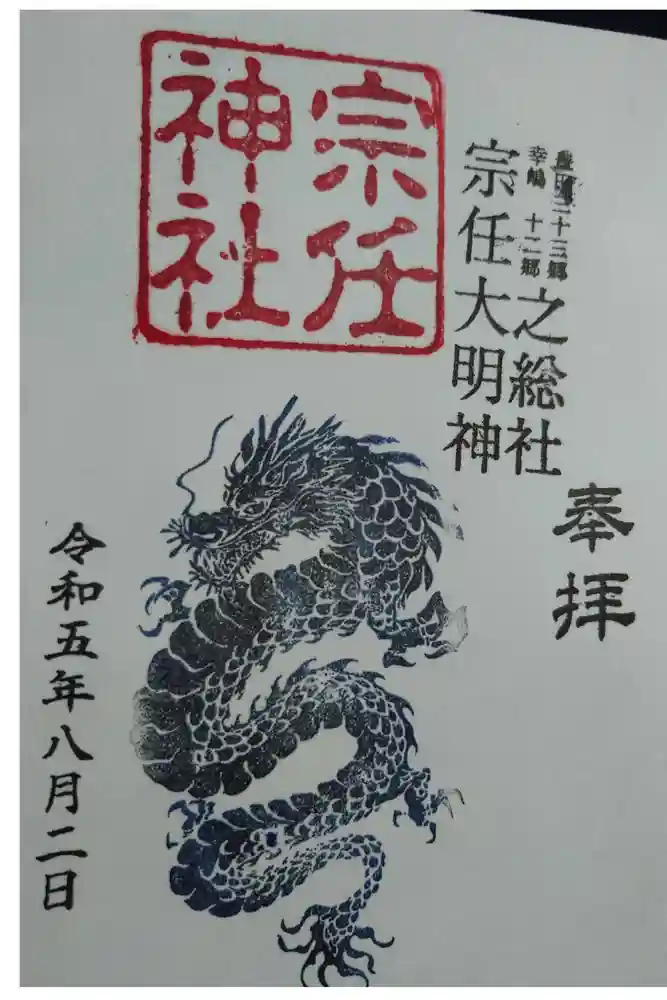 奉拝
十三郷
幸嶋 十二郷
之総社
宗任大明神
宗任
神社
令和五年八月二日